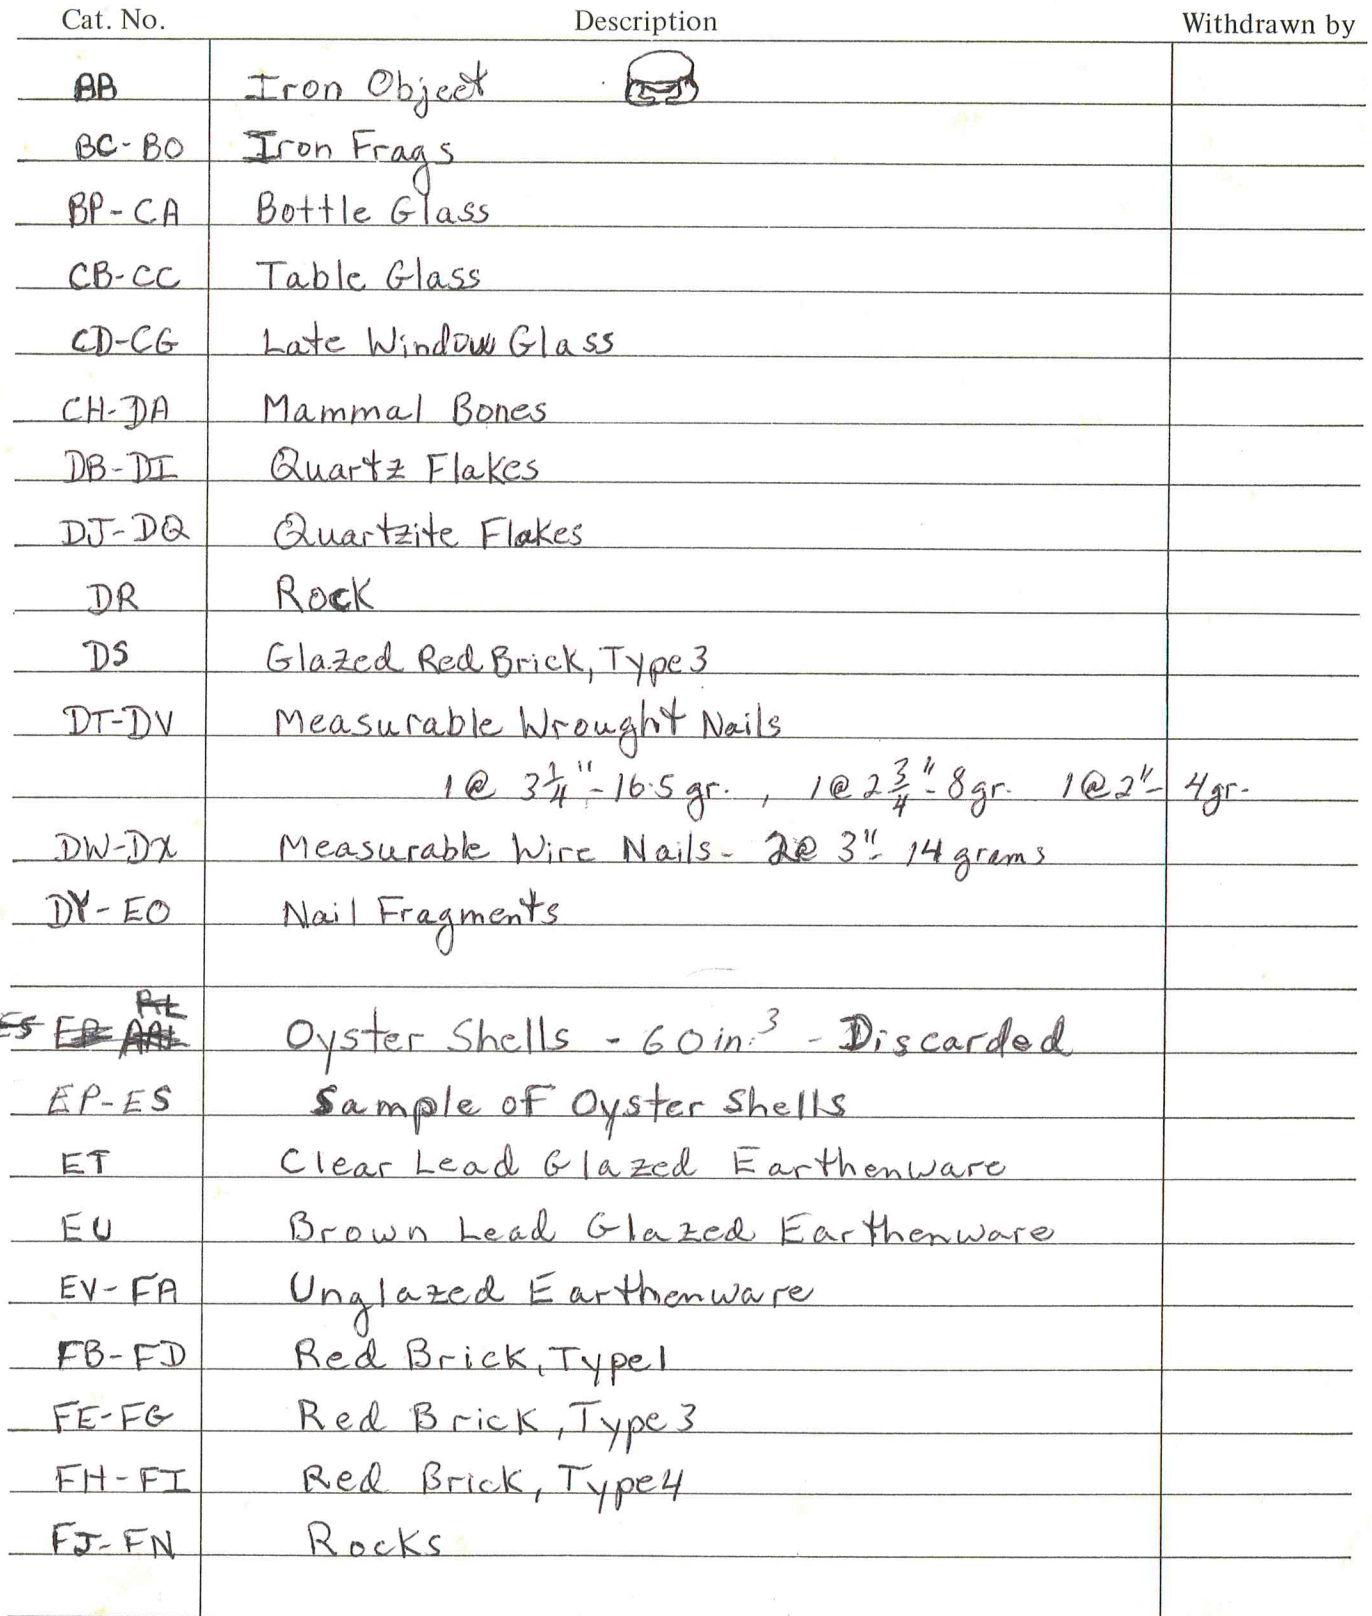 Cat. No. Description Withdrawn by
BB Iron Object
BC-BO Iron Frags
BP-CA Bottle Glass
CB-CC Table Glass
CD-CG Late Window Glass
CH-DA Mammal Bones
DB-DI Quartz Flakes
DJ-DQ Quartzite Flakes
DR Rock
DS Glazed Red Brick, Type 3
DT-DV Measurable Wrought Nails
1@ 3 1/4" - 16.5 gr., 1@ 2 3/4" - 8 gr. 1@ 2" - 4 gr.
DW-DX Measurable Wire Nails - 2@ 3" - 14 grams
DY-EO Nail Fragments
Oyster Shells - 60 in.³ - Discarded
EP-ES Sample of Oyster Shells
ET Clear Lead Glazed Earthenware
EU Brown Lead Glazed Earthenware
EV-FA Unglazed Earthenware
FB-FD Red Brick, Type 1
FE-FG Red Brick, Type 3
FH-FI Red Brick, Type 4
FJ-FN Rocks